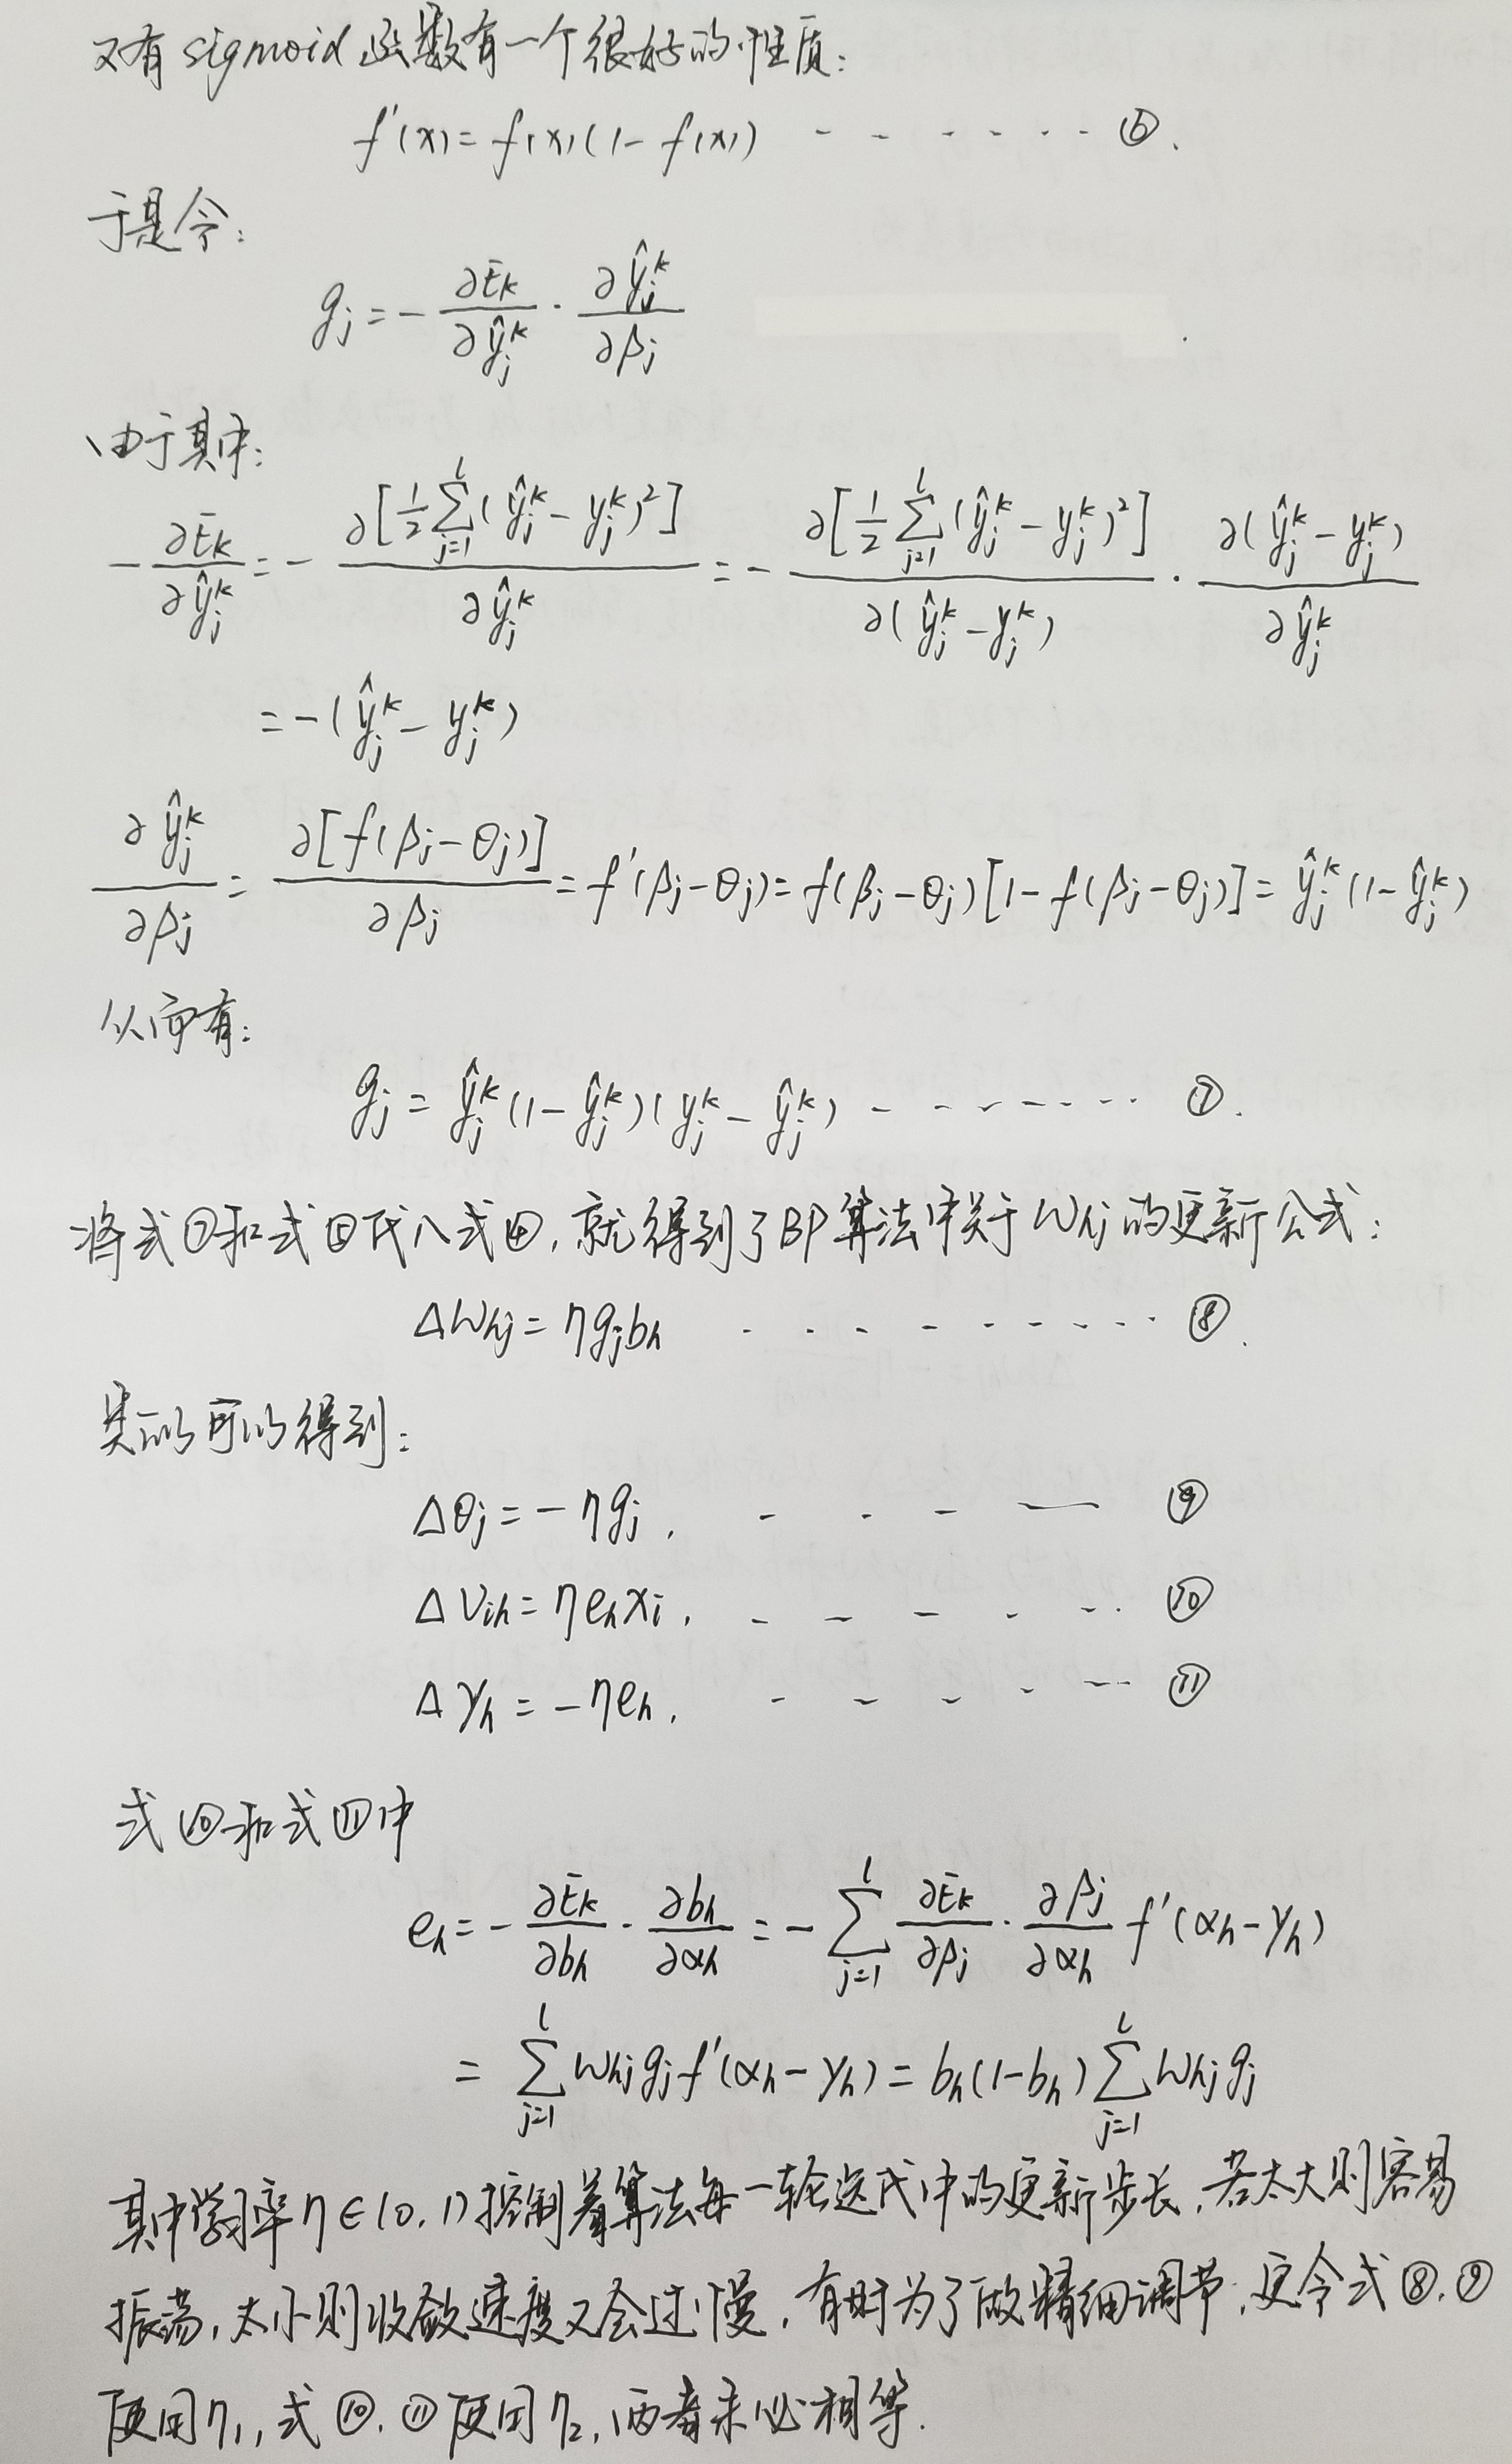 又有sigmoid函数有一个很好的性质:
f'(x)=f(x)(1-f(x)) - - - - - - ⑥.
于是令:
g_j = -∂E_k/∂ŷ_j^k · ∂ŷ_j^k/∂β_j
由于其中:
-∂E_k/∂ŷ_j^k = -∂[1/2 Σ_{j=1}^{l}(ŷ_j^k - y_j^k)^2]/∂ŷ_j^k = -∂[1/2 Σ_{j=1}^{l}(ŷ_j^k - y_j^k)^2]/∂(ŷ_j^k - y_j^k) · ∂(ŷ_j^k - y_j^k)/∂ŷ_j^k
= -(ŷ_j^k - y_j^k)
∂ŷ_j^k/∂β_j = ∂[f(β_j - θ_j)]/∂β_j = f'(β_j - θ_j) = f(β_j - θ_j)[1 - f(β_j - θ_j)] = ŷ_j^k(1 - ŷ_j^k)
从而有:
g_j = ŷ_j^k(1 - ŷ_j^k)(y_j^k - ŷ_j^k) - - - - - - - ⑦.
将式⑦和式⑤代入式④,就得到了BP算法中关于W_hj的更新公式:
ΔW_hj = ηg_jb_h - - - - - - - - - ⑧.
类似可以得到:
Δθ_j = -ηg_j, - - - — ⑨
ΔV_ih = ηe_hx_i, - - - - - - ⑩
Δγ_h = -ηe_h, - - - - - - ⑪
式⑩和式⑪中
e_h = -∂E_k/∂b_h · ∂b_h/∂α_h = -Σ_{j=1}^{l} ∂E_k/∂β_j · ∂β_j/∂α_h f'(α_h - γ_h)
= Σ_{j=1}^{l} W_hj g_j f'(α_h - γ_h) = b_h(1 - b_h) Σ_{j=1}^{l} W_hj g_j
其中学习率η∈(0,1)控制着算法每一轮迭代中的更新步长,若太大则容易
振荡,太小则收敛速度又会过慢,有时为了做精细调节,更令式⑧,⑨
使用η_1,式⑩,⑪使用η_2,两者未必相等.